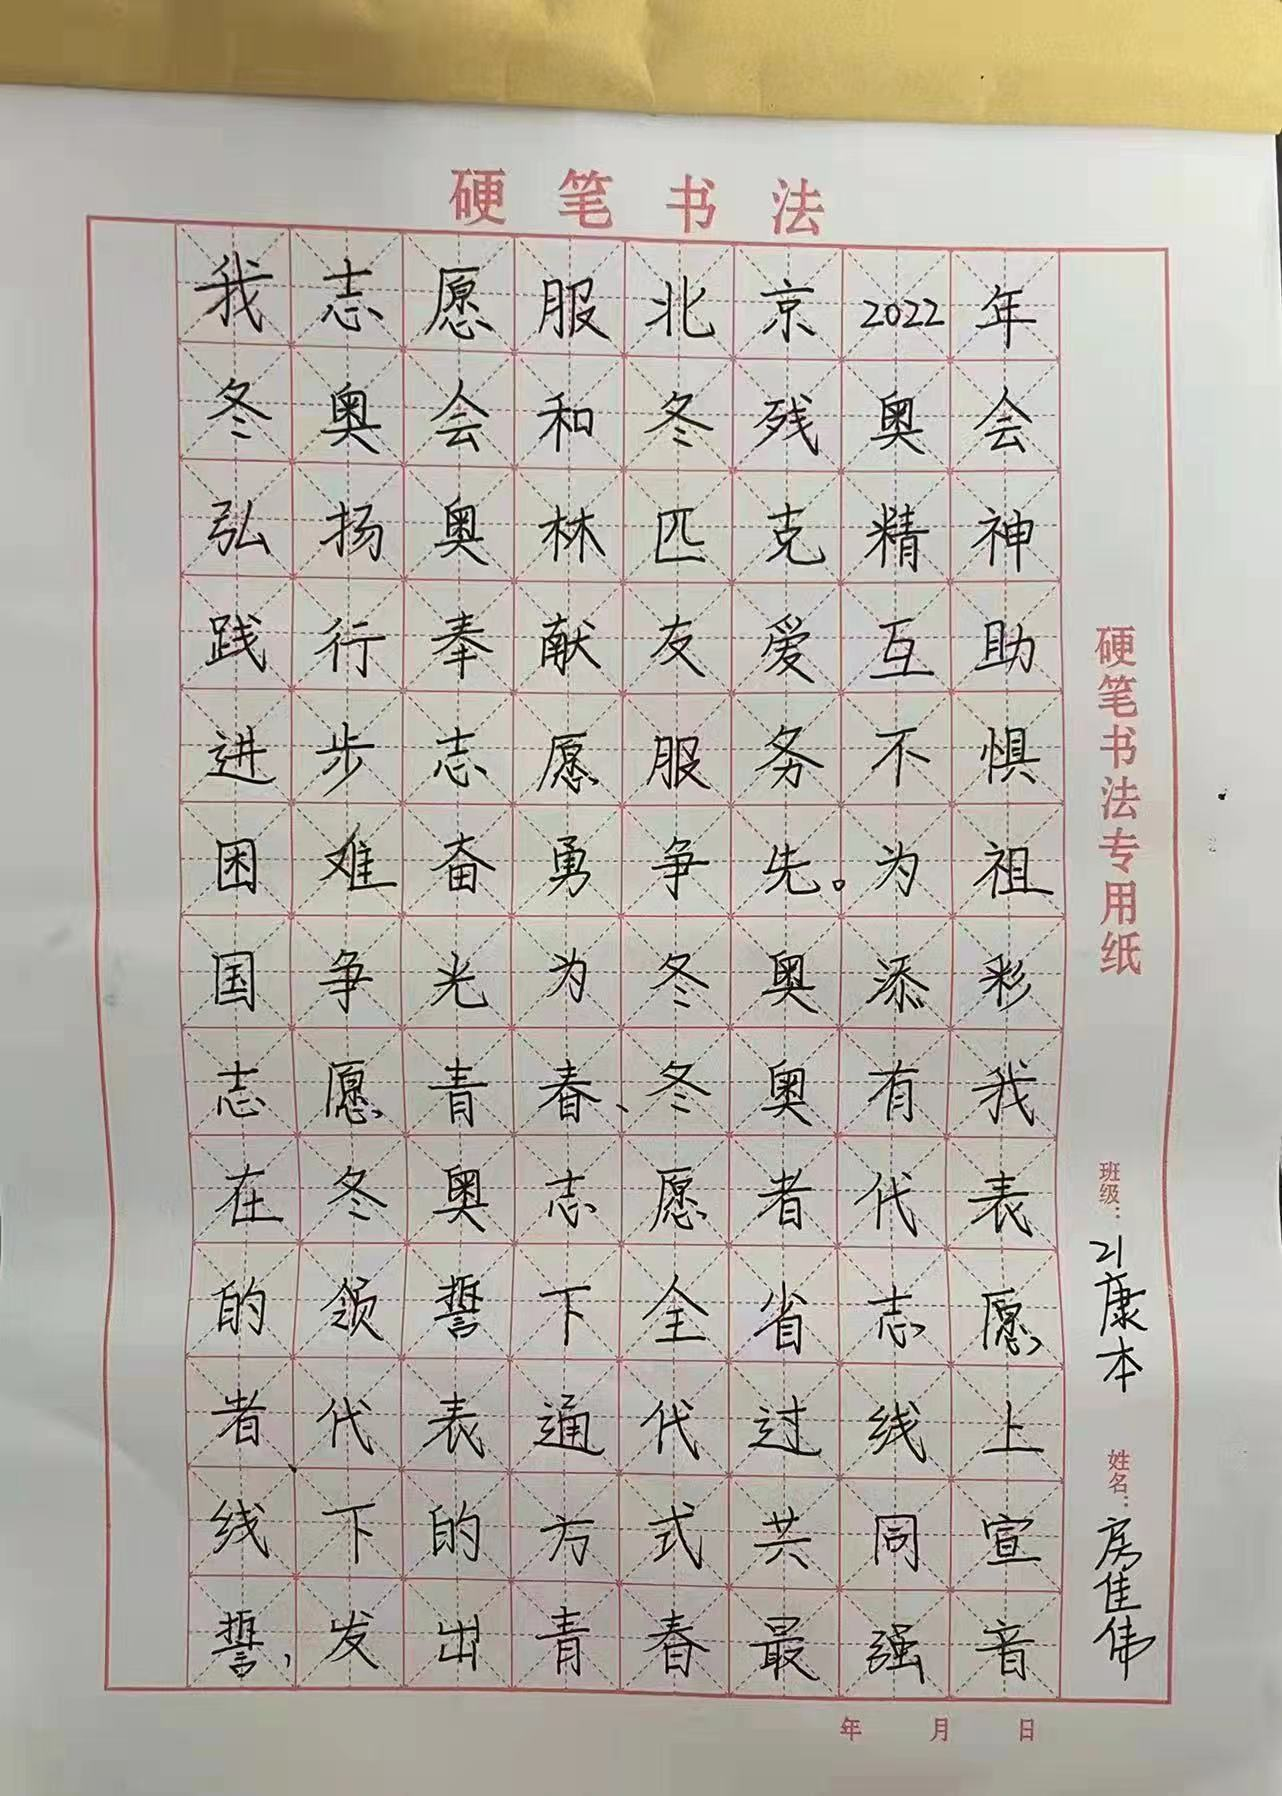 硬笔书法
我志愿服北京2022年
冬奥会和冬残奥会
弘扬奥林匹克精神
践行奉献友爱互助
进步志愿服务不惧
困难奋勇争先。为祖
国争光为冬奥添彩
志愿青春、冬奥有我
在冬奥志愿者代表
的领誓下全省志愿
者代表通代过线上
线下的方式共同宣
誓,发出青春最强音
硬笔书法专用纸
班级:21康本
姓名:房佳伟
年 月 日